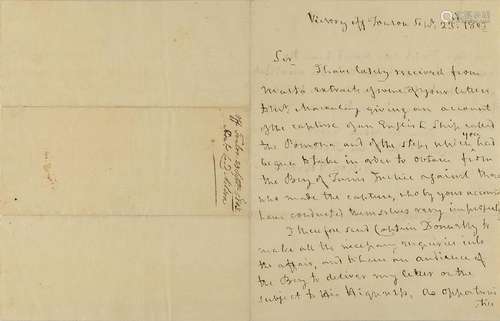 Victory off Toulon Sept. 23d. 1803
Sir,
I have lately received from
Malta extracts of some of your letters
to Mr. Macaulay giving an account
of the capture of an English Ship called
the Pomona and of the steps which you had
begun to take in order to obtain from
the Bey of Tunis Justice against those
who made the capture, who by your account
have conducted themselves very improperly
I therefore send Captain Donnelly to
make all the necessary enquiries into
the affair, and to have an audience of
the Bey to deliver my letter on the
subject to His Highness, As opportuni
ties
off Toulon 23 Septr. 1803
Lord Nelson